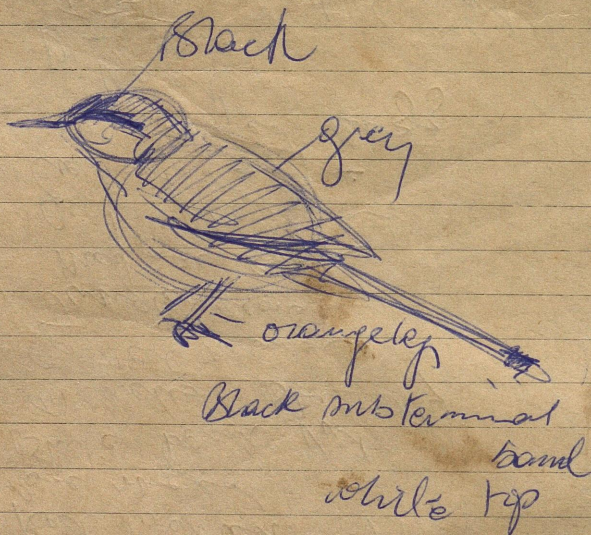 Black
grey
orangeleg
Black subterminal
band
white tip